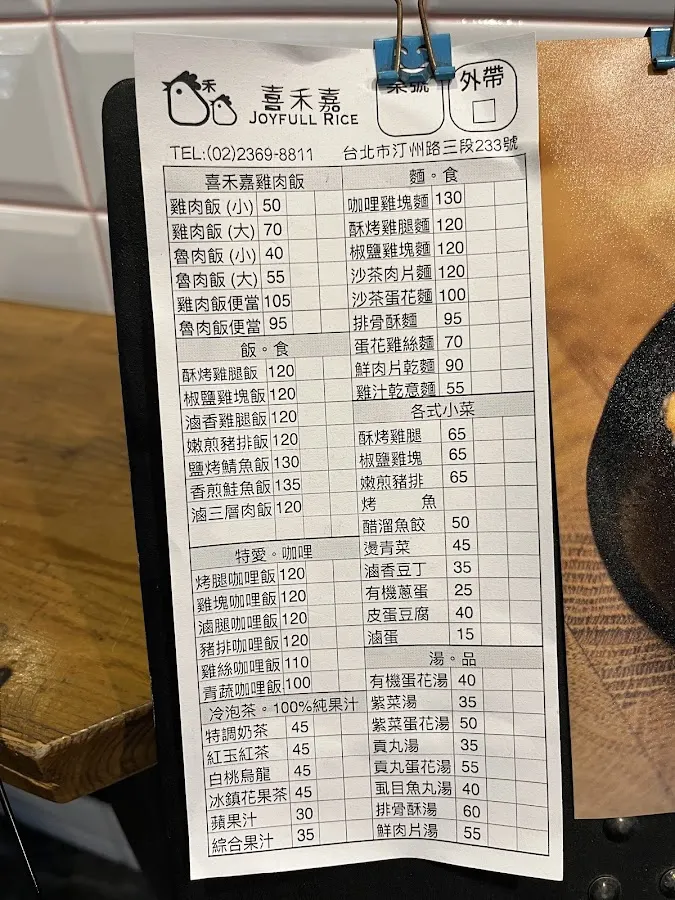 禾
喜禾嘉
JOYFULL RICE
桌號
外帶
TEL:(02)2369-8811 台北市汀州路三段233號
喜禾嘉雞肉飯
雞肉飯 (小) 50
雞肉飯 (大) 70
魯肉飯 (小) 40
魯肉飯 (大) 55
雞肉飯便當 105
魯肉飯便當 95
飯。食
酥烤雞腿飯 120
椒鹽雞塊飯 120
滷香雞腿飯 120
嫩煎豬排飯 120
鹽烤鯖魚飯 130
香煎鮭魚飯 135
滷三層肉飯 120
特愛。咖哩
烤腿咖哩飯 120
雞塊咖哩飯 120
滷腿咖哩飯 120
豬排咖哩飯 120
雞絲咖哩飯 110
青蔬咖哩飯 100
冷泡茶。100%純果汁
特調奶茶 45
紅玉紅茶 45
白桃烏龍 45
冰鎮花果茶 45
蘋果汁 30
綜合果汁 35
麵。食
咖哩雞塊麵 130
酥烤雞腿麵 120
椒鹽雞塊麵 120
沙茶肉片麵 120
沙茶蛋花麵 100
排骨酥麵 95
蛋花雞絲麵 70
鮮肉片乾麵 90
雞汁乾意麵 55
各式小菜
酥烤雞腿 65
椒鹽雞塊 65
嫩煎豬排 65
烤 魚
醋溜魚餃 50
燙青菜 45
滷香豆丁 35
有機蔥蛋 25
皮蛋豆腐 40
滷蛋 15
湯。品
有機蛋花湯 40
紫菜湯 35
紫菜蛋花湯 50
貢丸湯 35
貢丸蛋花湯 55
虱目魚丸湯 40
排骨酥湯 60
鮮肉片湯 55